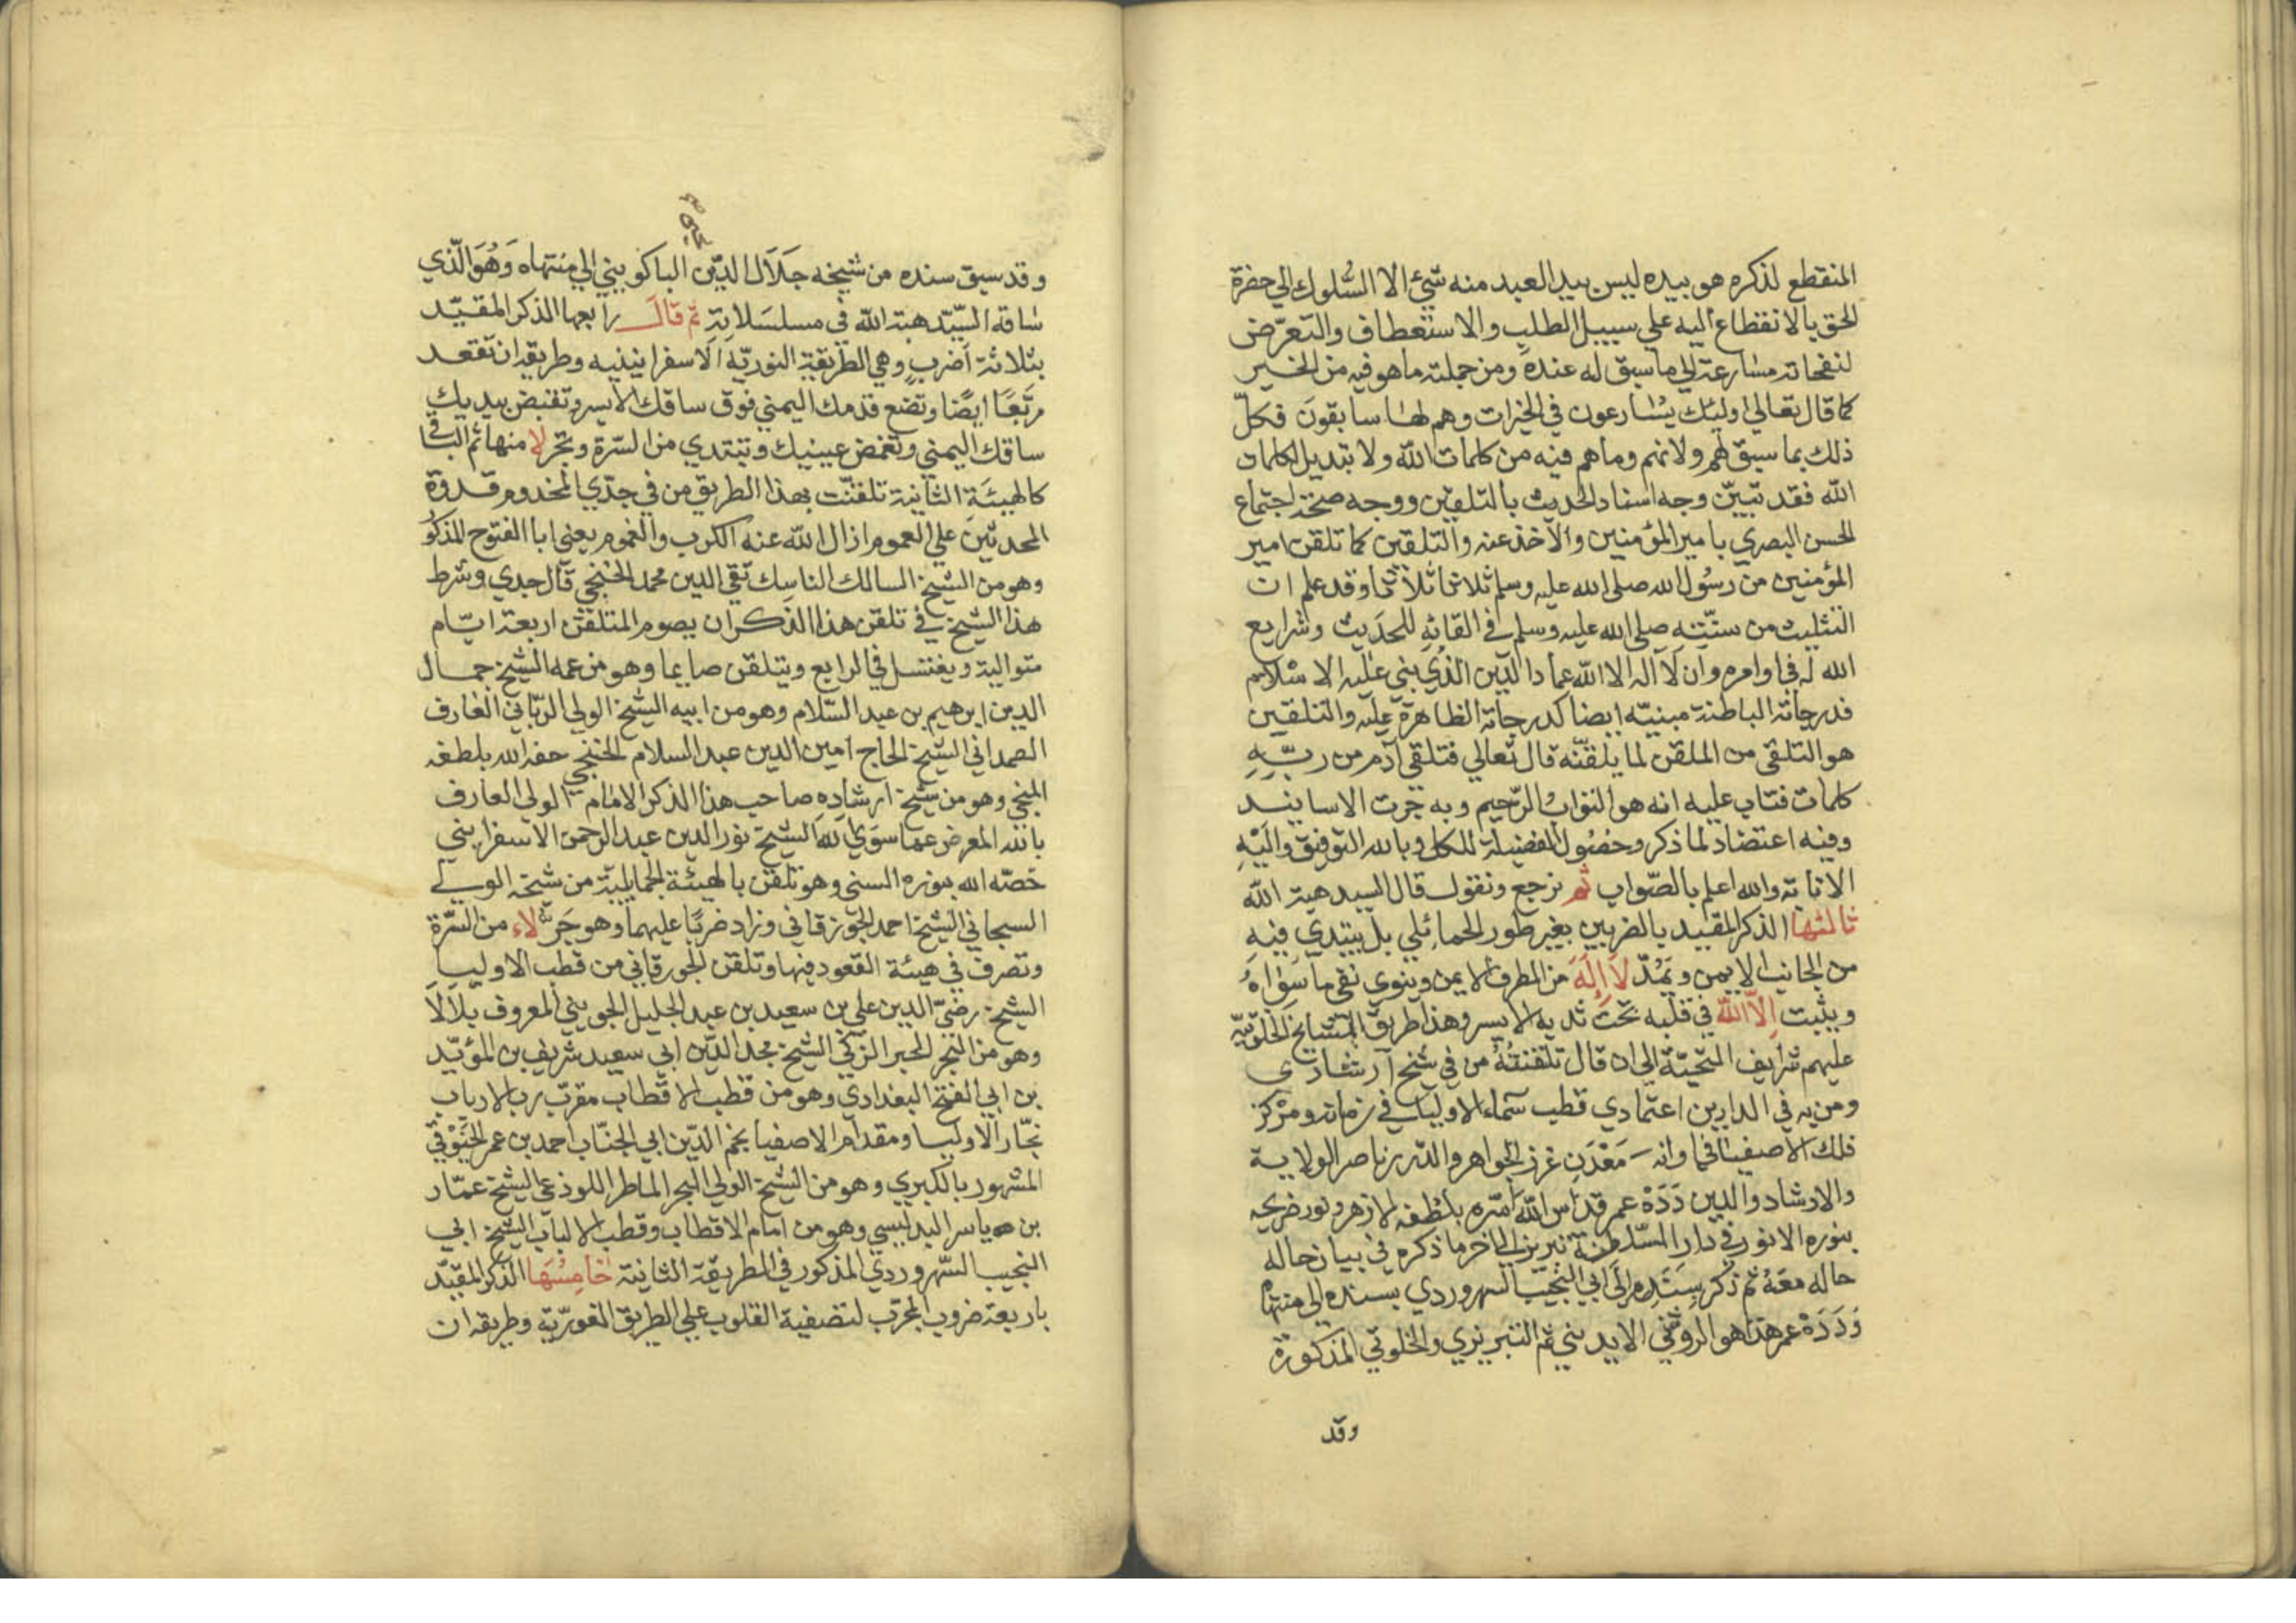 المنقطع لذكره هو بيده ليس بيد العبد منه شيئ الا السُّلوك الي حضرة
الحق بالانقطاع اليه علي سبيل الطلب والاستعطاف والتعرّض
لنفحاته مسارعة الي ما سبق له عنده ومن جملته ما هو فيه من الخير
كما قال تعالي اولئك يسارعون في الخيرات وهم لها سابقون فكلّ
ذلك بما سبق لهم ولانهم وما هم فيه من كلمات الله ولا تبديل لكلمات
الله فقد تبيّن وجه اسناد الحديث بالتلقين ووجه صحّة اجتماع
الحسن البصري بامير المؤمنين والاخذ عنه والتلقين كما تلقن امير
المؤمنين من رسُول الله صلى الله عليه وسلم ثلاثا ثلاثا وقد علم ان
التثليث من سنّته صلى الله عليه وسلم في القائه للحديث وشرايع
الله له في اوامره وان لا اله الا الله عماد الدين الذي بني عليه الاسلام
فدرجاته الباطنة مبنيّه ايضا كدرجاته الظاهرة عليه والتلقين
هو التلقي من الملقن لما يلقّنه قال تعالي فتلقي آدم من ربّهِ
كلمات فتاب عليه انه هو التواب الرّحيم وبه جرت الاسانيد
وفيه اعتضاد لما ذكر وحصُول الفضيلة للكل وبالله التوفيق واليْهِ
الانابة والله اعلم بالصّواب ثم نرجع ونقول قال السيد هبة الله
ثالثها الذكر المقيد بالضربين بغير طور الحمائلي بل يبتدي فيهِ
من الجانب الايمن ويَمُدّ لا إلَهَ من الطرف الايمن وينوي نفي ما سِوَاهُ
ويثبت إلاّ الله في قلبه تحت ثديه الايسر وهذا طريق المشايخ الخلوتيّه
عليهم شرايف التحيّة الي ان قال تلقنتُهُ من في شيخ ارشادي
ومن به في الدارين اعتمادي قطب سماء الاوليا في زمانه ومرْكز
فلك الاصفيا في اوانه مَعْدَنِ غرز الجواهر والدّرر ناصر الولاية
والارشاد والدين دَدَهْ عمر قدّس الله سرّه بلُطفه الازهر ونور ضريحه
بنوره الانور في دار السّلطنة تبريز الي اخر ما ذكره في بيان حاله
حاله معَهُ ثم ذكر سنَدِه الي ابي النجيب السهروردي بسنده الي منتهاه
وَدَدَهْ عمر هذا هو الروشني الايديني ثم التبريزي والخلوتي المذكورة
وقد
وقد سبق سنده من شيخه جَلَال الدّين الباكويني الي منتهاه وَهُوَ الّذي
سَاقه السّيّد هبة الله في مسلسَلاته ثم قال رابعها الذكر المقيّد
بثلاثة أضربٍ وهي الطريقة النوريّة الاسفراينيه وطريقه ان تقعد
مربّعًا ايضًا وتضع قدمك اليمني فوق ساقك الايسر وتقبض بيديك
ساقك اليمني وتغمض عينيك وتبتدي من السّرة وتجر لا منها ثم الباقي
كالهيئة الثانية تلقنّت بهذا الطريق من في جدّي المخدوم قدوَة
المحدثين علي العموم ازال الله عنه الكرب والغموم يعني ابا الفتوح المذكو
وهو من الشيخ السالك الناسك تقي الدين محمد الخنجي قال جدي وشرط
هذا الشيخ في تلقن هذا الذكر ان يصوم المتلقن اربعة ايّام
متوالية ويغتسل في الرابع ويتلقن صايما وهو من عمه الشيخ جمال
الدين ابرهيم بن عبد السّلام وهو من ابيه الشيخ الولي الربّاني العارف
الصمداني الشيخ الحاج امين الدين عبد السلام الخنجي حفه الله بلطفه
المنجي وهو من شيخ ارشاده صاحب هذا الذكر الامام الولي العارف
بالله المعرض عما سوَي الله الشيخ نور الدين عبد الرحمن الاسفرايني
خصّه الله بنوره السني وهو تلقن بالهيئة الحمايليّة من شيخه الولي
السبحاني الشيخ احمد الجوزقاني وزاد ضربًا عليهما وهو جَرّ لاء من السّرة
وتصرف في هيئة القعود فيها وتلقن الجورقاني من قطب الاوليا
الشيخ رضيّ الدين علي بن سعيد بن عبد الجليل الجويني المعروف بلالا
وهو من البحر الحبر الزكي الشيخ مجد الدّين ابي سعيد شريف بن المؤيّد
بن ابي الفتح البغدادي وهو من قطب الاقطاب مقرّب رب الارباب
نجّار الاوليا ومقدام الاصفيا نجم الدّين ابي الجنّاب احمد بن عمر الخيَوْقي
المشهور بالكبري وهو من الشيخ الولي البحر الماطر اللوذعي الشيخ عمّار
بن ياسر البدليسي وهو من امام الاقطاب وقطب الالباب الشيخ ابي
النجيب السّهروردي المذكور في الطريقة الثانية خامِسُهَا الذكر المقيّد
باربعة ضروب المجرّب لتصفية القلوب علي الطريق الغوريّة وطريقه ان